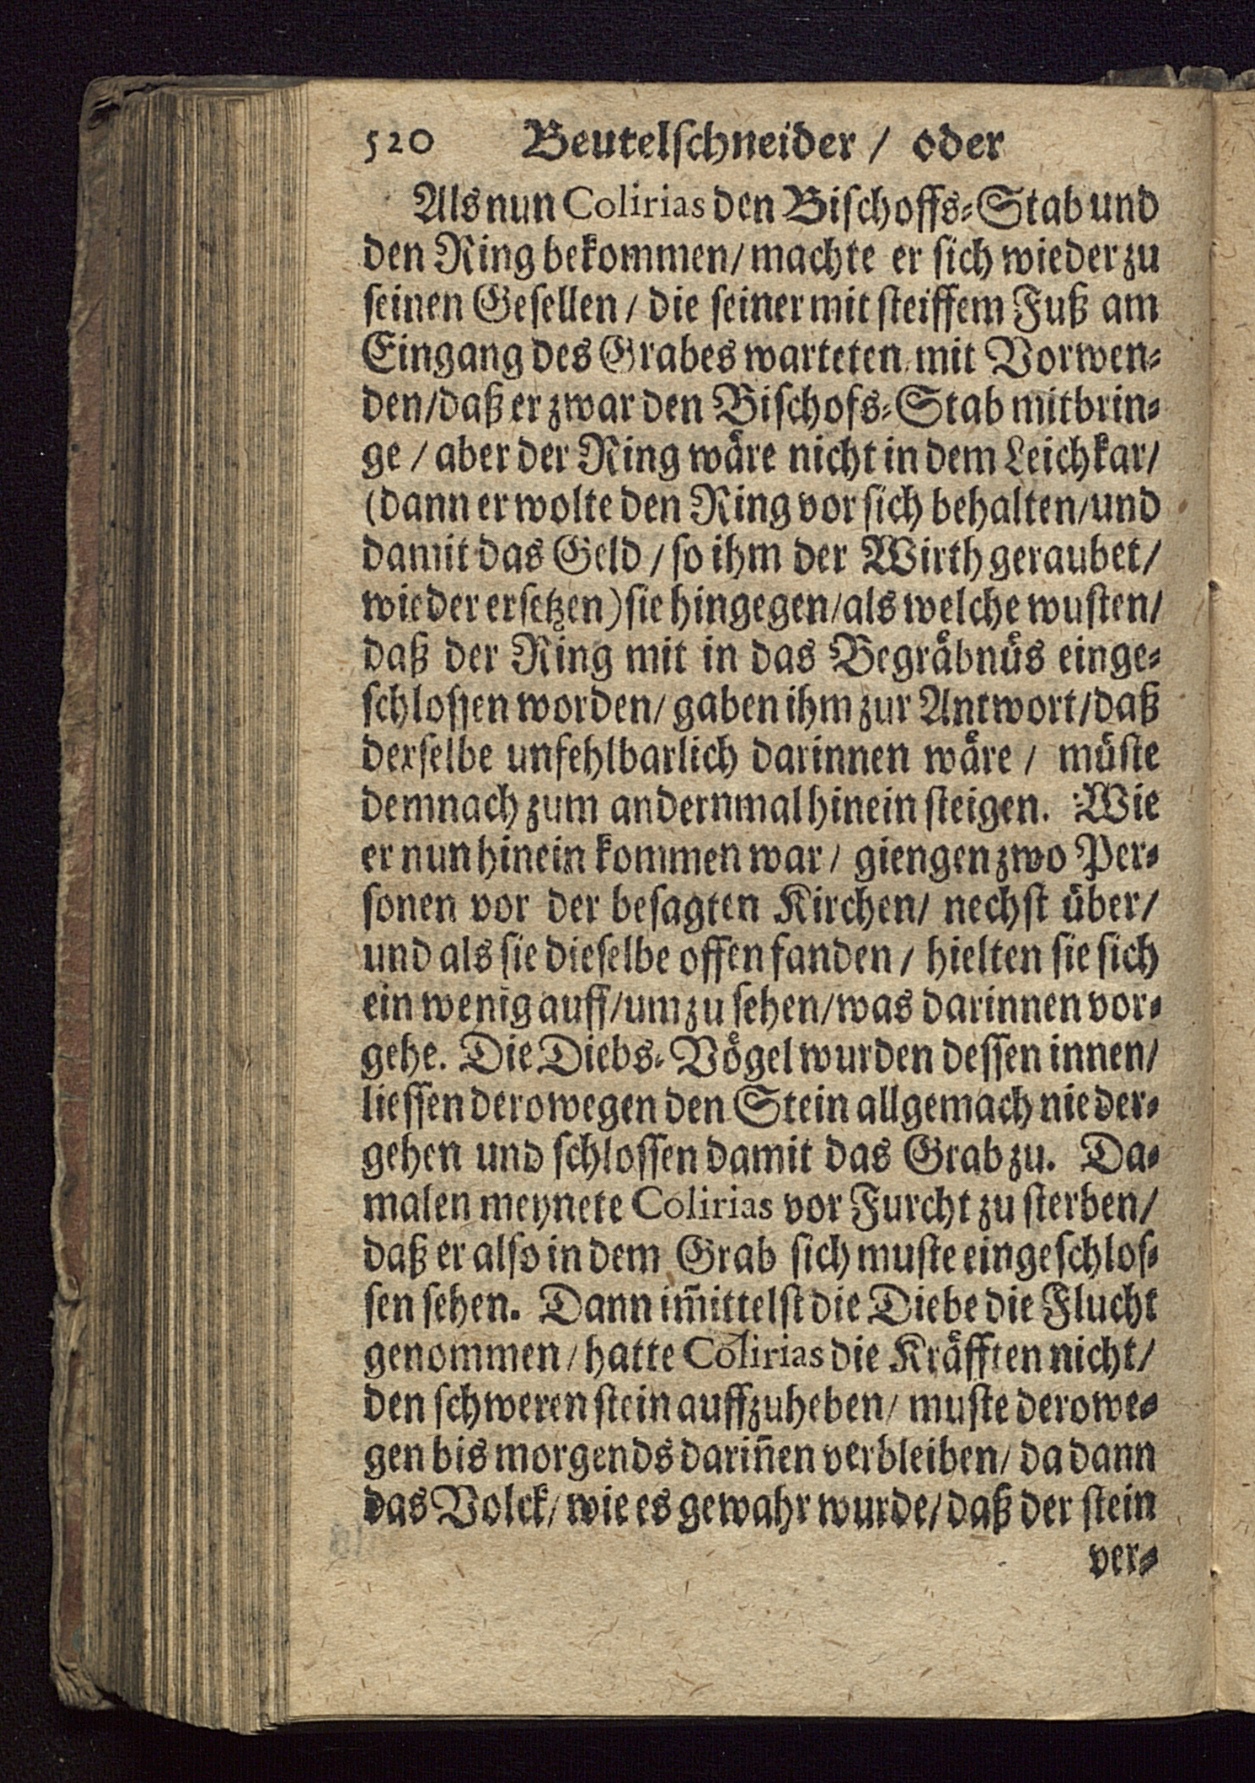 520 Beutelschneider / oder
Als nun Colirias den Bischoffs-Stab und
den Ring bekommen / machte er sich wieder zu
seinen Gesellen / die seiner mit steiffem Fuß am
Eingang des Grabes warteten / mit Vorwen-
den / daß er zwar den Bischofs-Stab mitbrin-
ge / aber der Ring wäre nicht in dem Leichkar /
(dann er wolte den Ring vor sich behalten / und
damit das Geld / so ihm der Wirth geraubet /
wieder ersetzen) sie hingegen / als welche wusten /
daß der Ring mit in das Begräbnüs einge-
schlossen worden / gaben ihm zur Antwort / daß
derselbe unfehlbarlich darinnen wäre / müste
demnach zum andernmal hinein steigen. Wie
er nun hinein kommen war / giengen zwo Per-
sonen vor der besagten Kirchen / nechst über /
und als sie dieselbe offen fanden / hielten sie sich
ein wenig auff / um zu sehen / was darinnen vor-
gehe. Die Diebs-Vögel wurden dessen innen /
liessen derowegen den Stein allgemach nieder-
gehen und schlossen damit das Grab zu. Da-
malen meynete Colirias vor Furcht zu sterben /
daß er also in dem Grab sich muste eingeschlos-
sen sehen. Dann im̃ittelst die Diebe die Flucht
genommen / hatte Colirias die Kräfften nicht /
den schweren stein auffzuheben / muste derowe-
gen bis morgends dariñen verbleiben / da dann
das Volck / wie es gewahr wurde / daß der stein
ver-